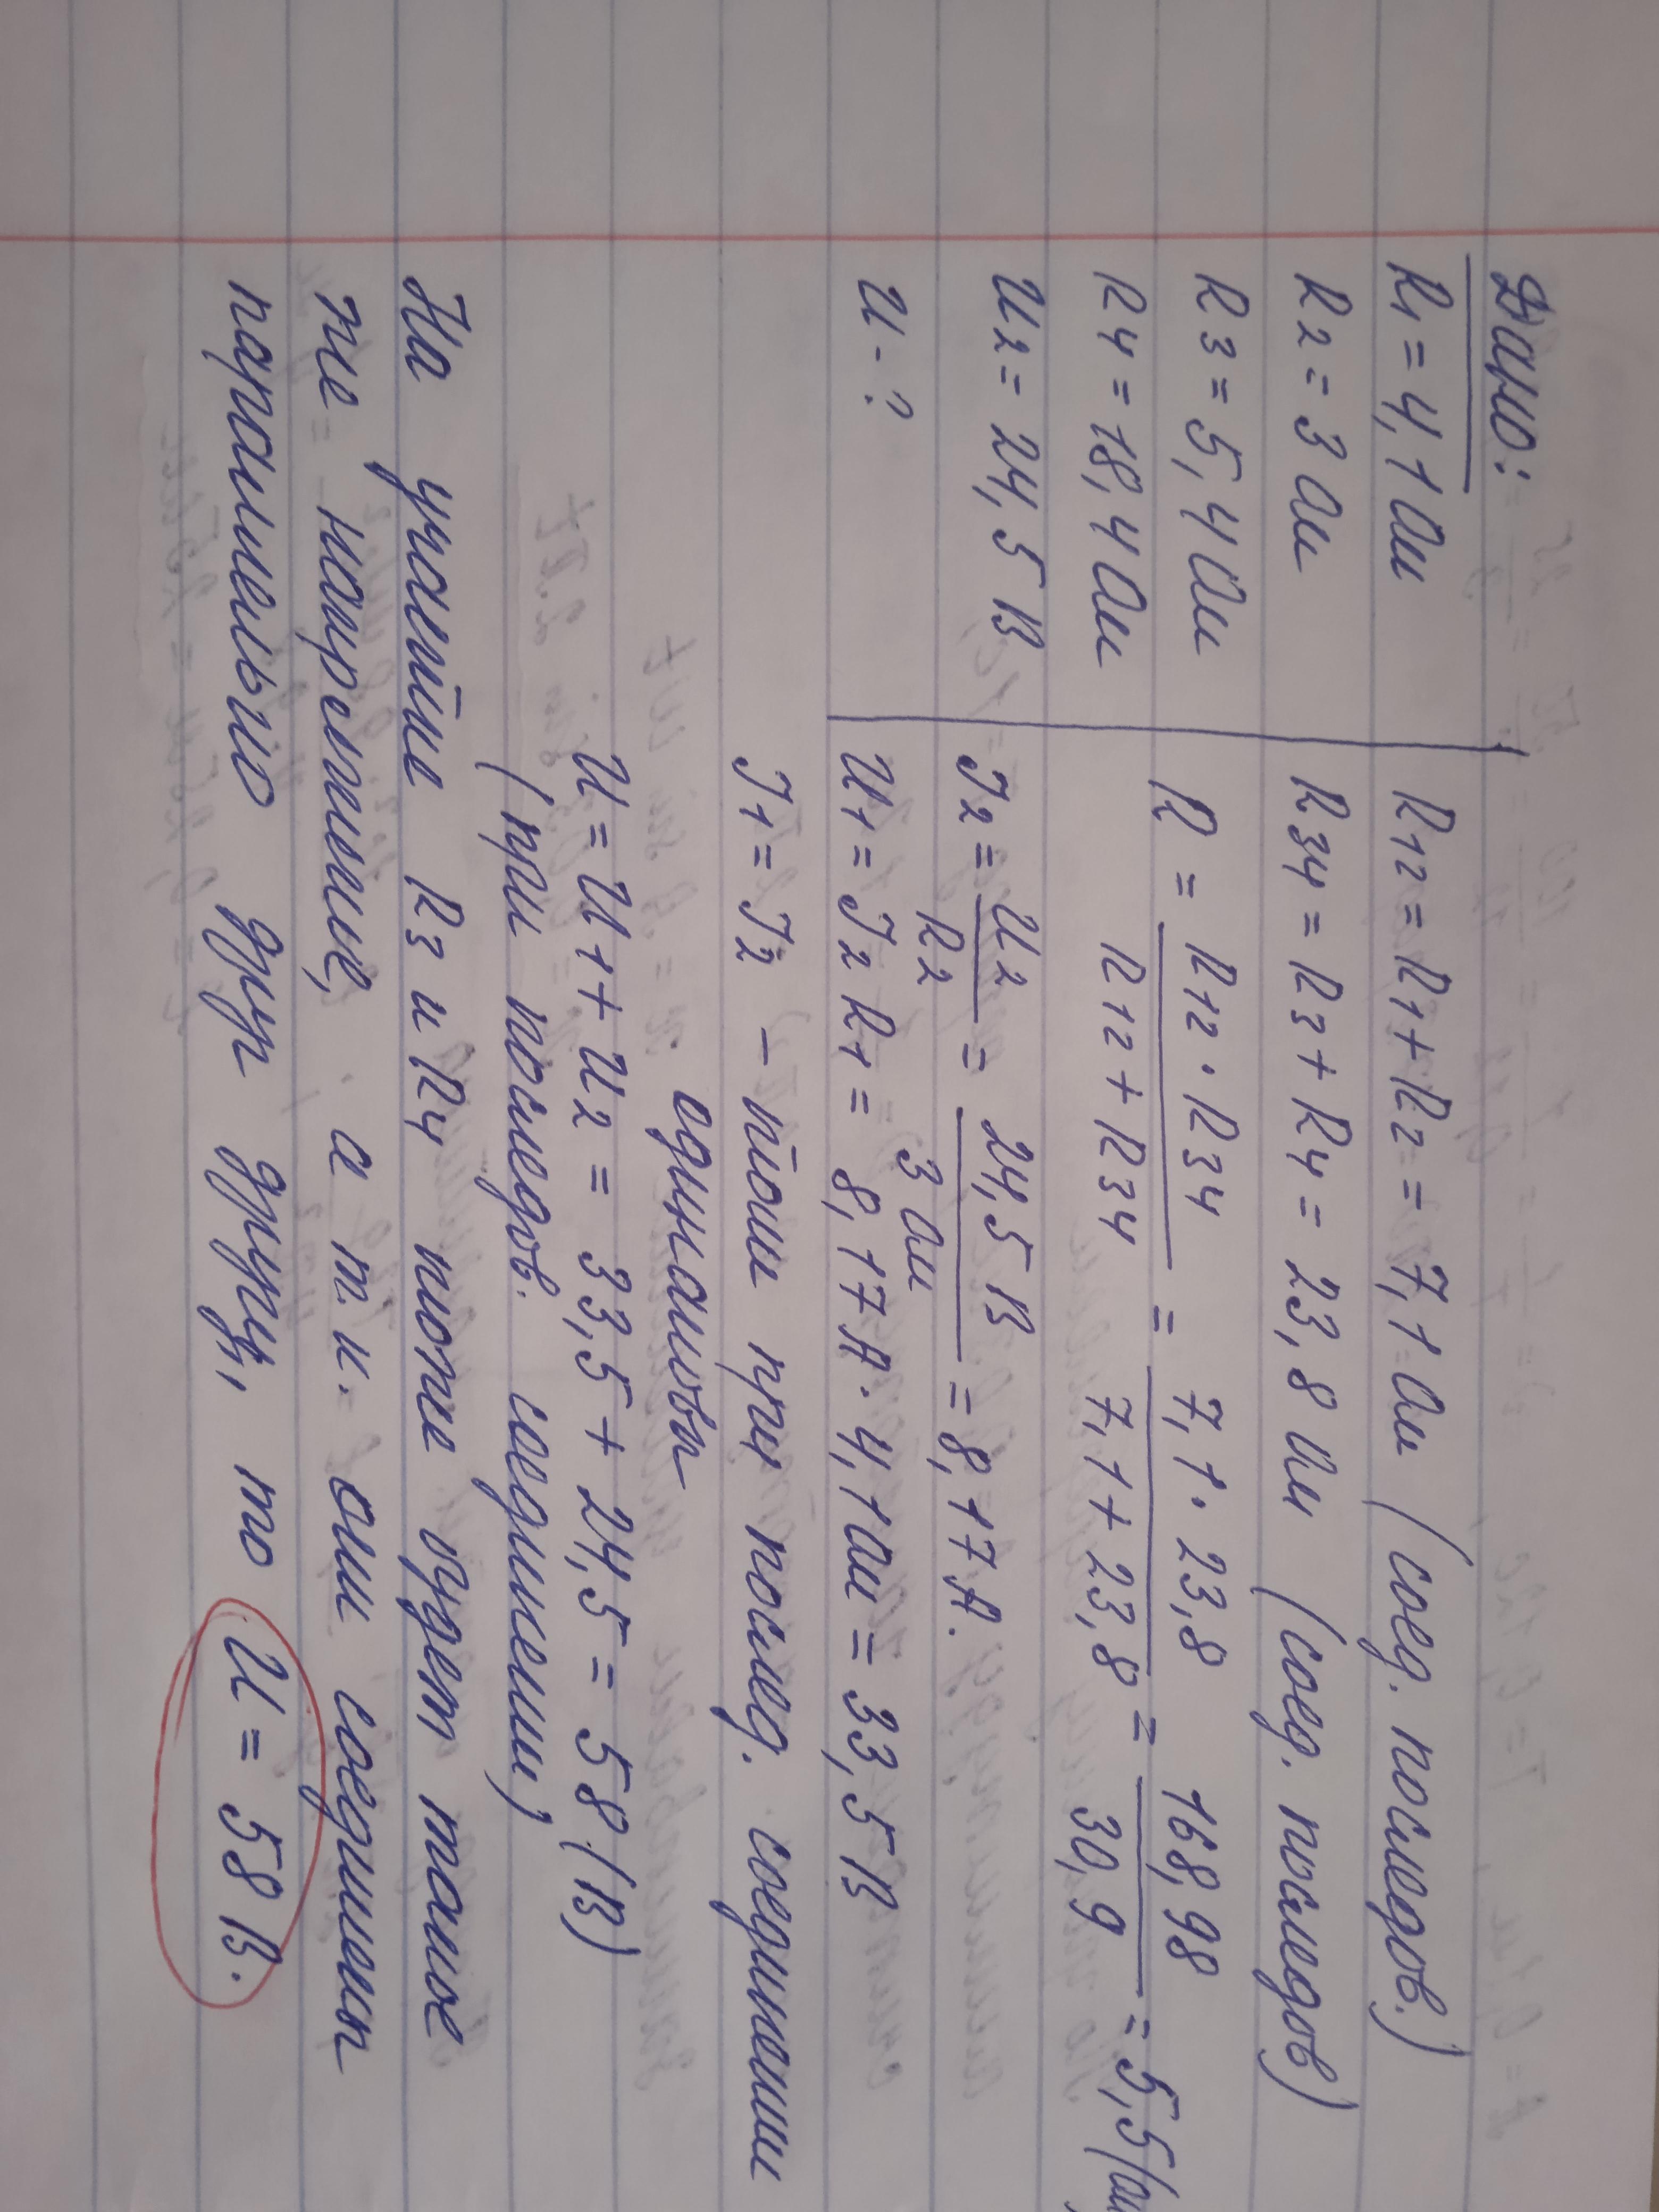 Дано:
R1 = 4,1 Ом
R2 = 3 Ом
R3 = 5,4 Ом
R4 = 18,4 Ом
U2 = 24,5 В
U - ?
R12 = R1 + R2 = 7,1 Ом (соед. последов.)
R34 = R3 + R4 = 23,8 Ом (соед. последов)
R = R12 · R34 / R12 + R34 = 7,1 · 23,8 / 7,1 + 23,8 = 168,98 / 30,9 = 5,5 (Ом
I2 = U2 / R2 = 24,5 В / 3 Ом = 8,17 А.
U1 = I2 R1 = 8,17 А · 4,1 Ом = 33,5 В
I1 = I2 – токи при послед. соединении
одинаковы
U = U1 + U2 = 33,5 + 24,5 = 58 (В)
(при последов. соединении)
На участке R3 и R4 тоже будет такое
же напряжение, а т.к. они соединены
параллельно друг другу, то U = 58 В.